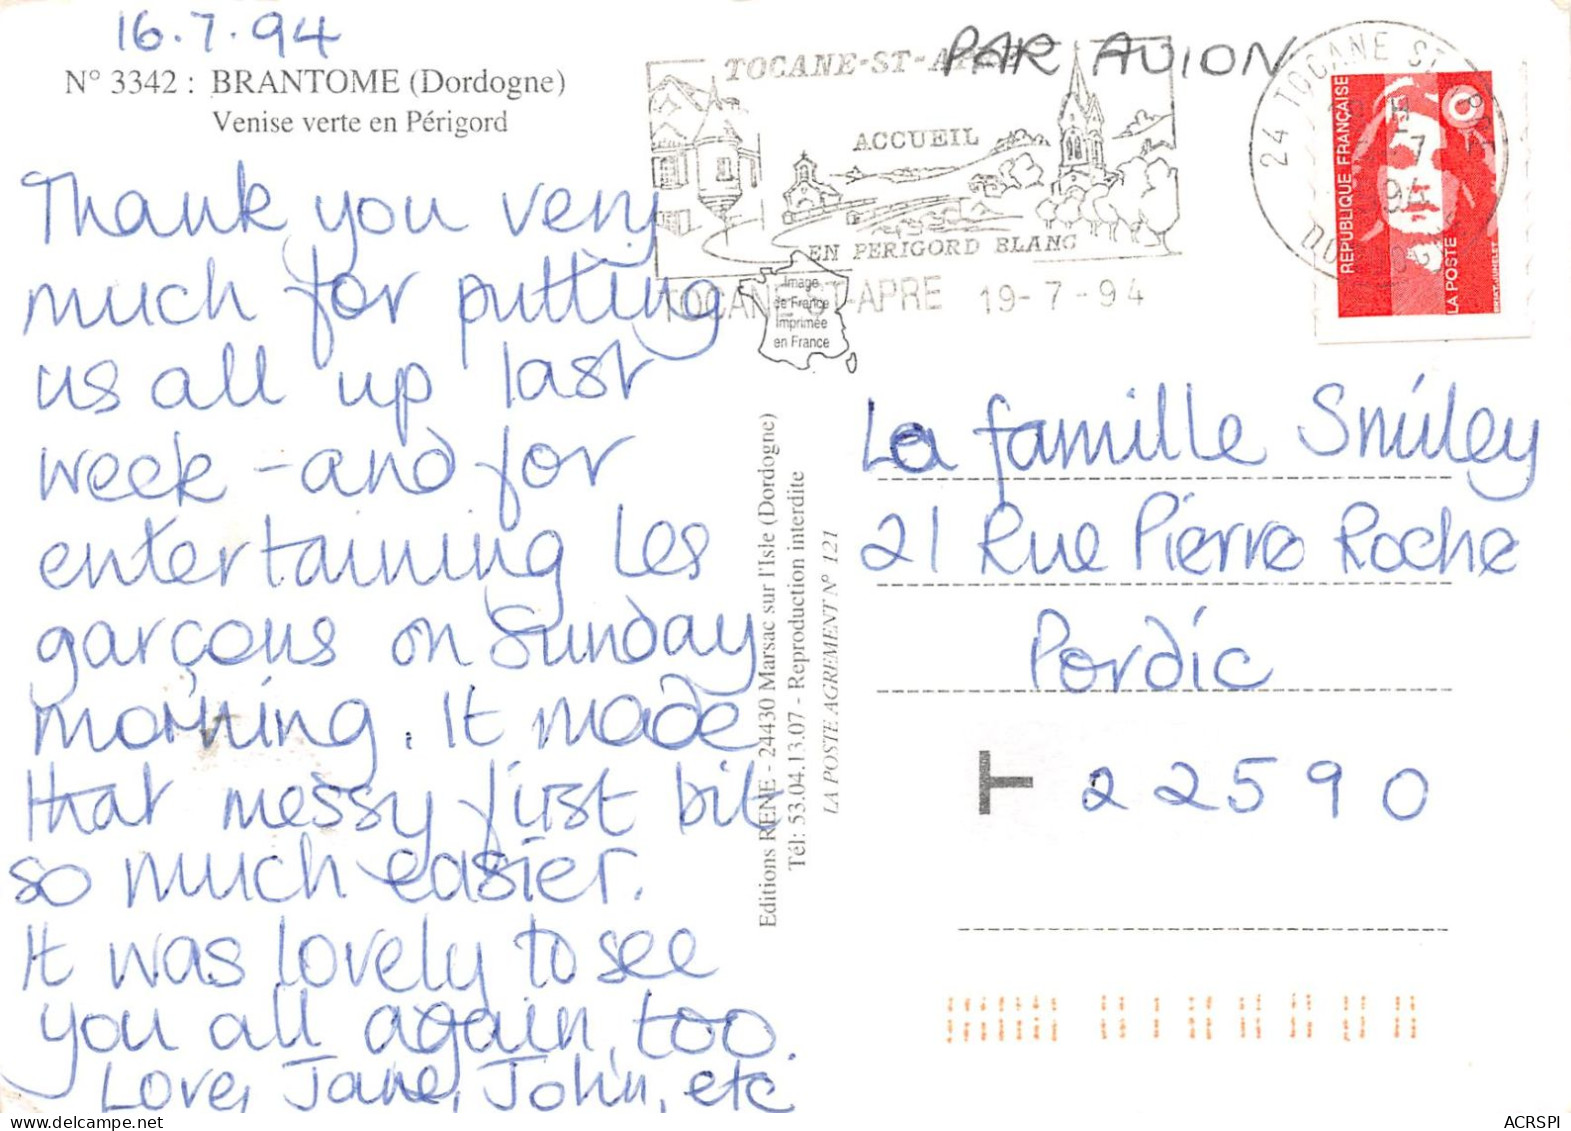 16.7.94
N° 3342 : BRANTOME (Dordogne)
Venise verte en Périgord
Thank you very
much for putting
us all up last
week - and for
entertaining les
garçons on Sunday
morning. It made
that messy just bit
so much easier.
It was lovely to see
you all again, too.
Love, Jane, John, etc
Editions RENE - 24430 Marsac sur l'Isle (Dordogne)
Tél: 53.04.13.07 - Reproduction interdite
LA POSTE AGREMENT N° 121
TOCANE-ST-APRE
ACCUEIL
EN PERIGORD BLANC
TOCANE-ST-APRE 19-7-94
Image
de France
Imprimée
en France
PAR AVION
24 TOCANE ST
7
94
REPUBLIQUE FRANÇAISE
LA POSTE
La famille Smiley
21 Rue Pierre Roche
Pordic
T 22590
ACRSPI